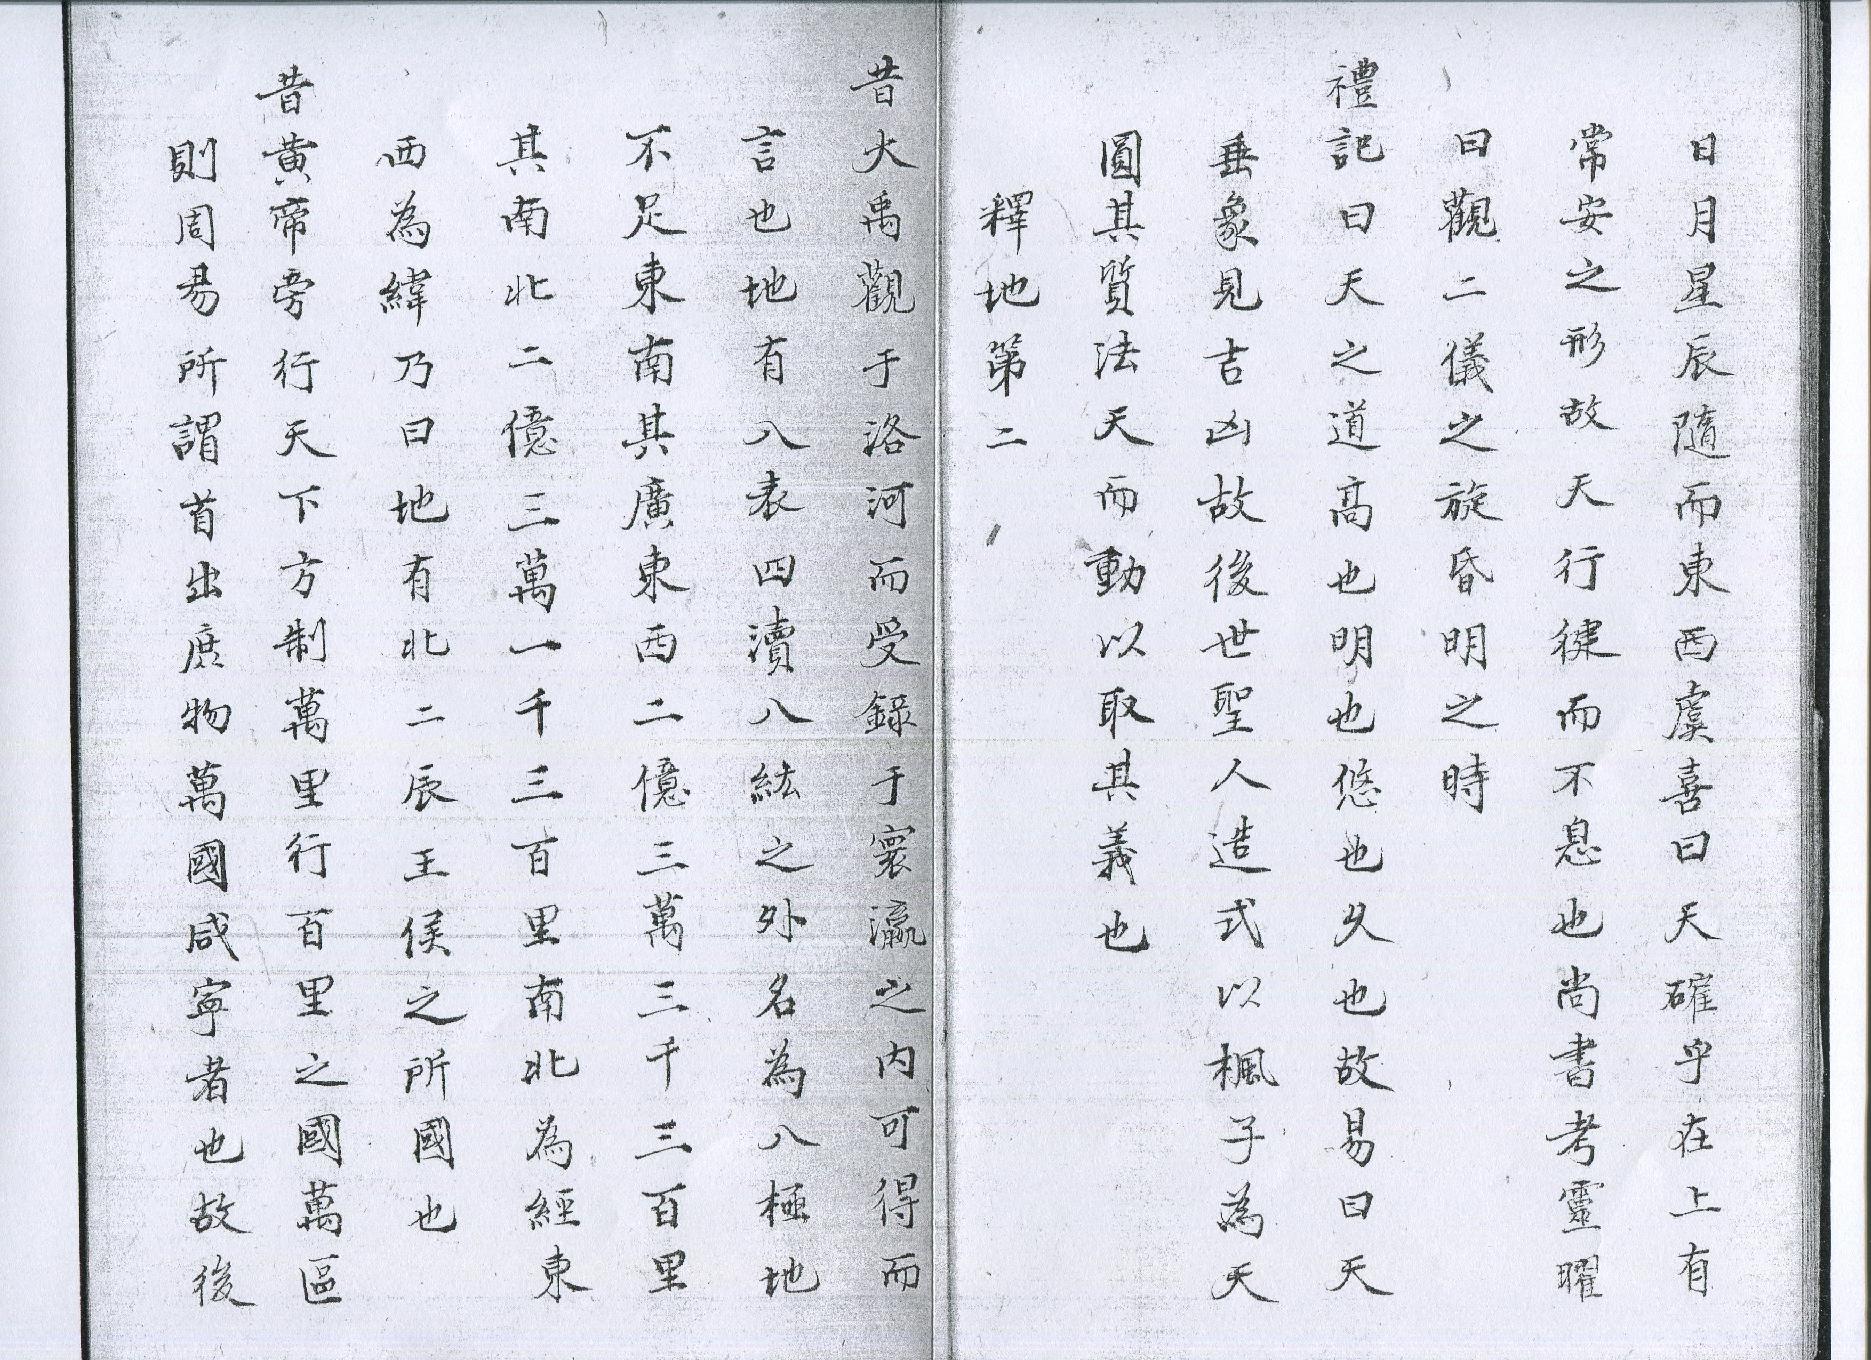 日月星辰隨而東西虞喜曰天確乎在上有
常安之形故天行徤而不息也尚書考靈曜
曰觀二儀之旋昏明之時
禮記曰天之道高也明也悠也久也故易曰天
垂象見吉凶故後世聖人造式以楓子為天
圓其質法天而動以取其義也
釋地第二
昔大禹觀于洛河而受錄于寰瀛之内可得而
言也地有八表四瀆八紘之外名為八極地
不足東南其廣東西二億三萬三千三百里
其南北二億三萬一千三百里南北為經東
西為緯乃曰地有北二辰王侯之所國也
昔黄帝旁行天下方制萬里行百里之國萬區
則周易所謂首出庶物萬國咸寧者也故後